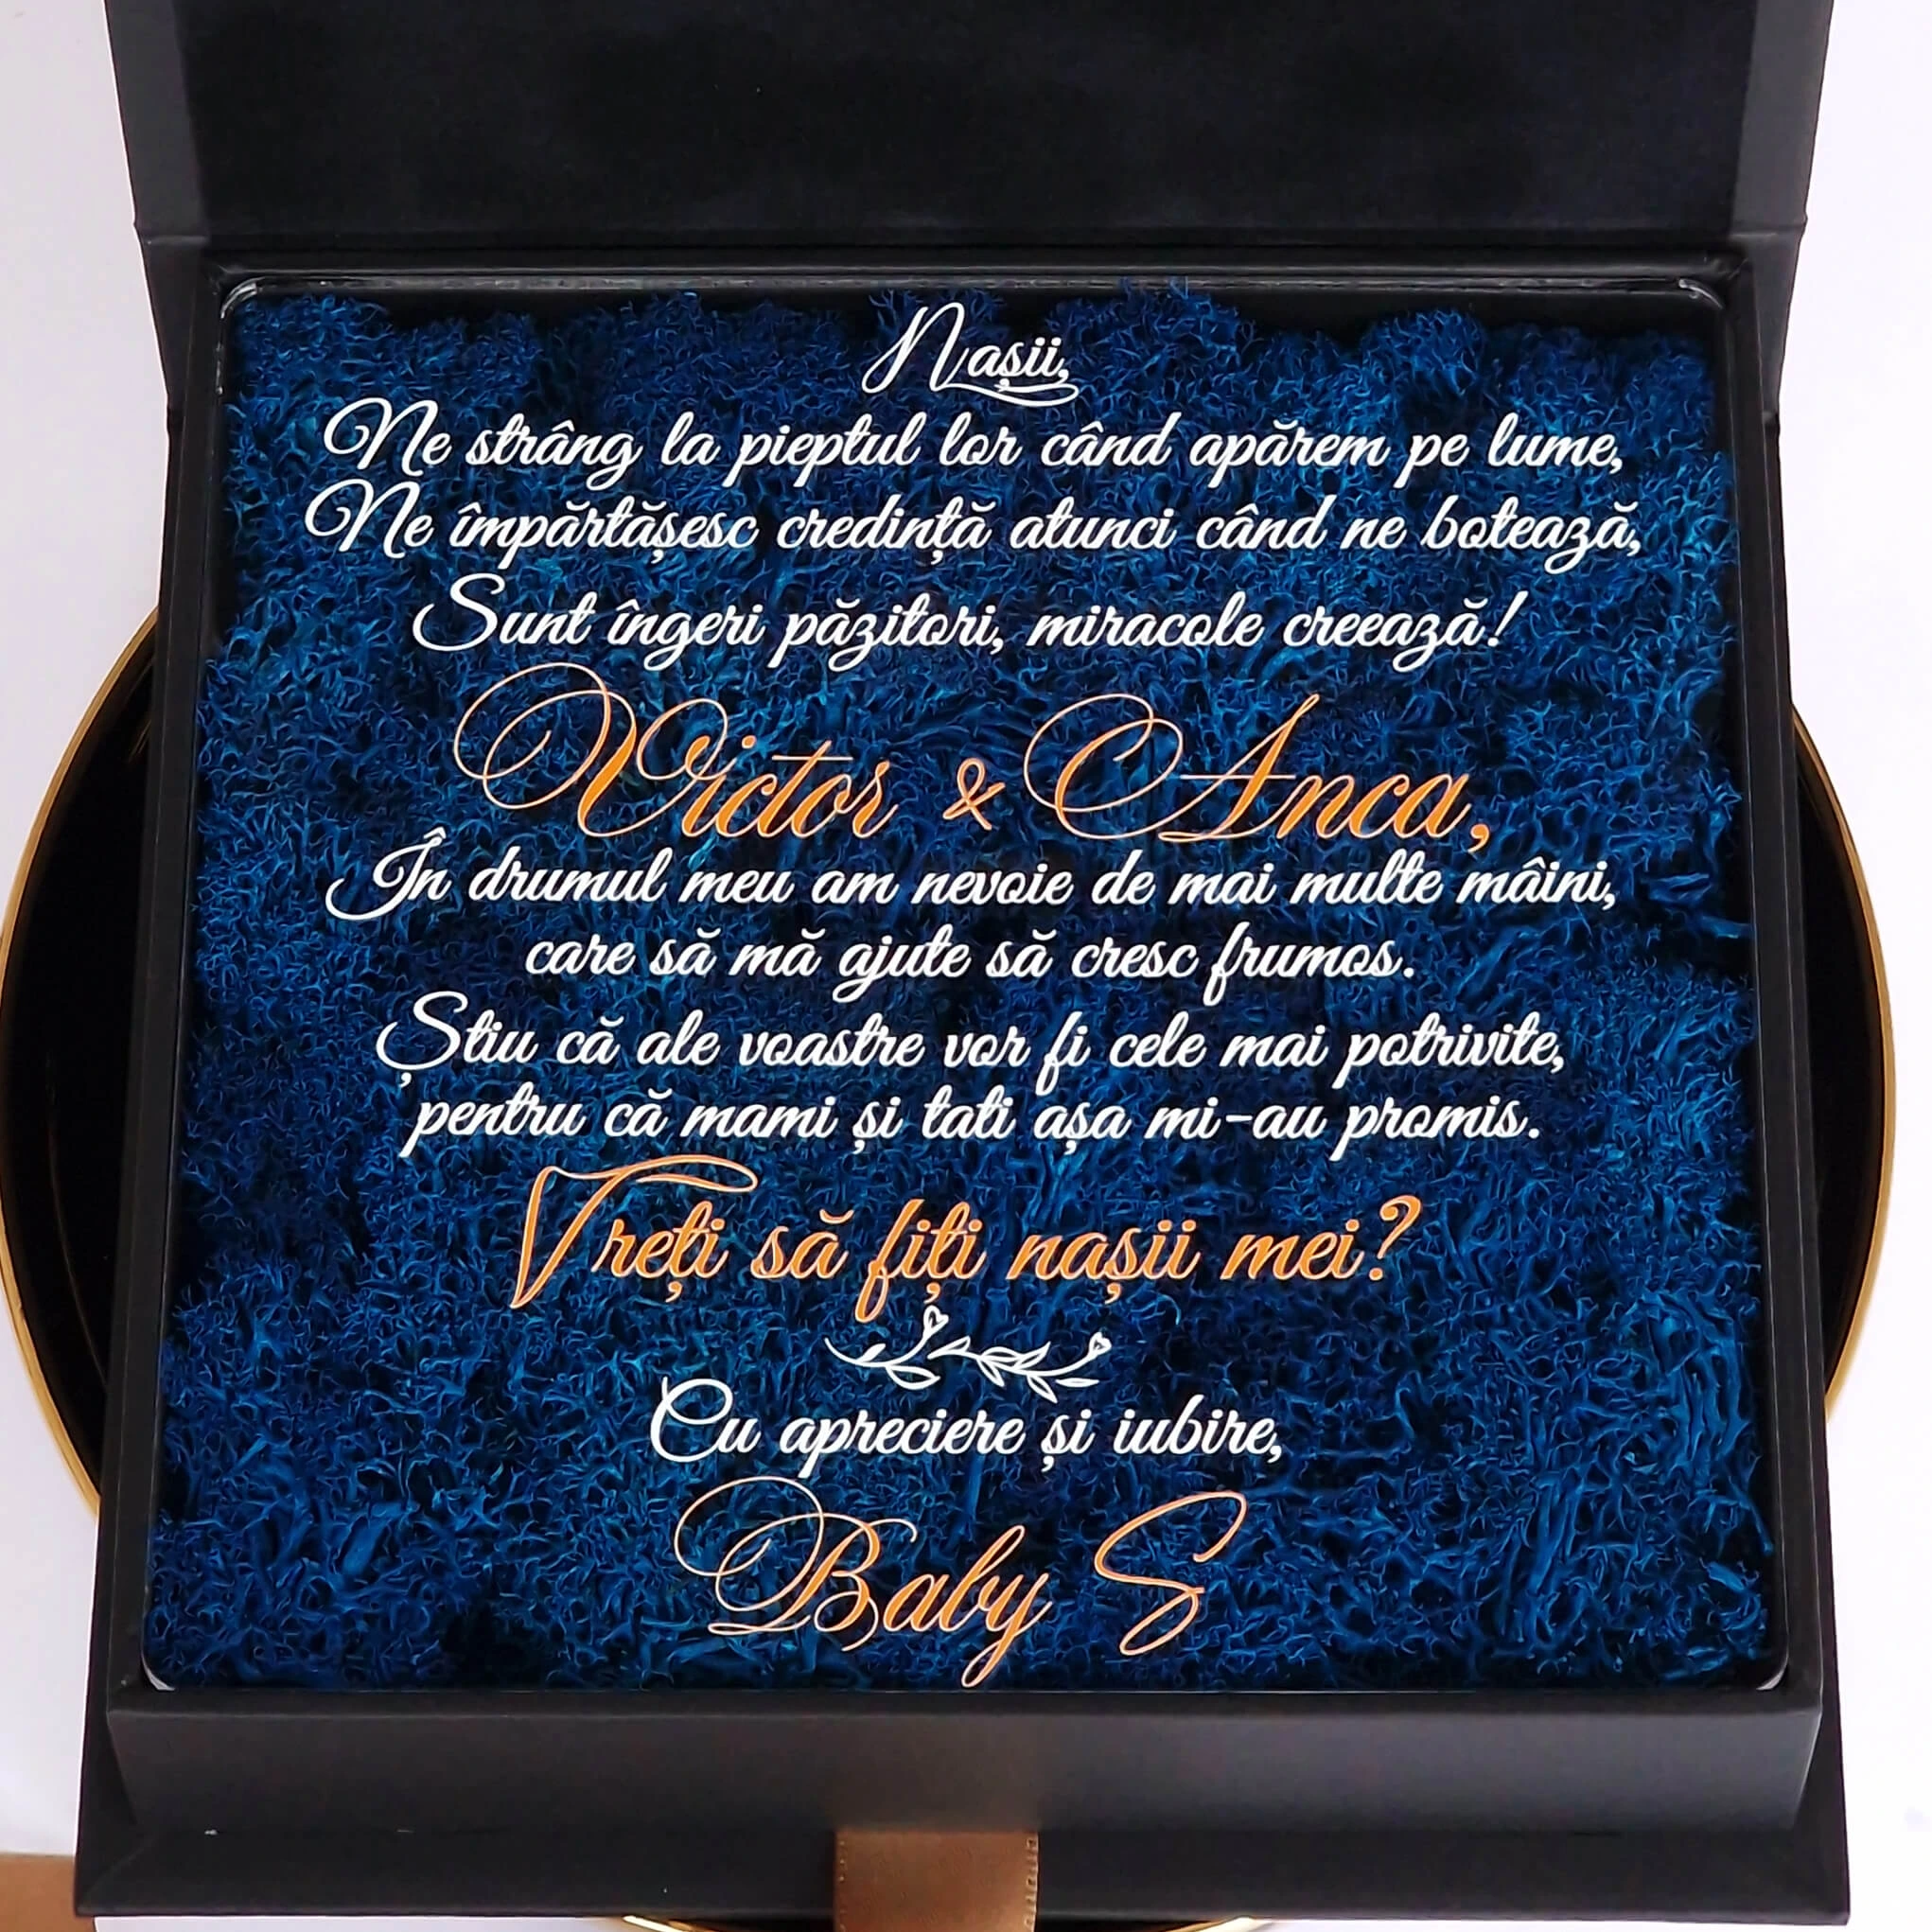 Nașii,
Ne strâng la pieptul lor când apărem pe lume,
Ne împărtășesc credință atunci când ne botează,
Sunt îngeri păzitori, miracole creează!
Victor & Anca,
În drumul meu am nevoie de mai multe mâini,
care să mă ajute să cresc frumos.
Știu că ale voastre vor fi cele mai potrivite,
pentru că mami și tati așa mi-au promis.
Vreți să fiți nașii mei?
Cu apreciere și iubire,
Baby S